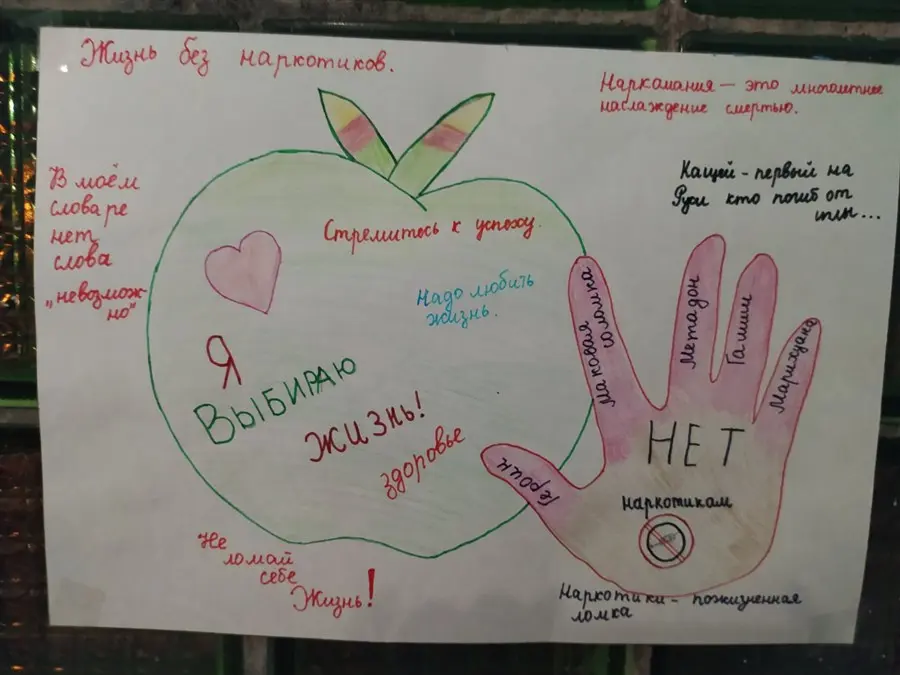 Жизнь без наркотиков.
Наркомания — это многолетнее
наслаждение смертью.
Кащей - первый на
Руси кто погиб от
иглы...
В моём
словаре
нет
слова
„невозмож-
но"
Стремитесь к успеху.
Надо любить
жизнь.
Я
ВЫБИРАЮ
ЖИЗНЬ!
здоровье
Героин
Маковая
соломка
Метадон
Гашиш
Марихуана
НЕТ
наркотикам
Не
ломай
себе
Жизнь!
Наркотики - пожизненная
ломка